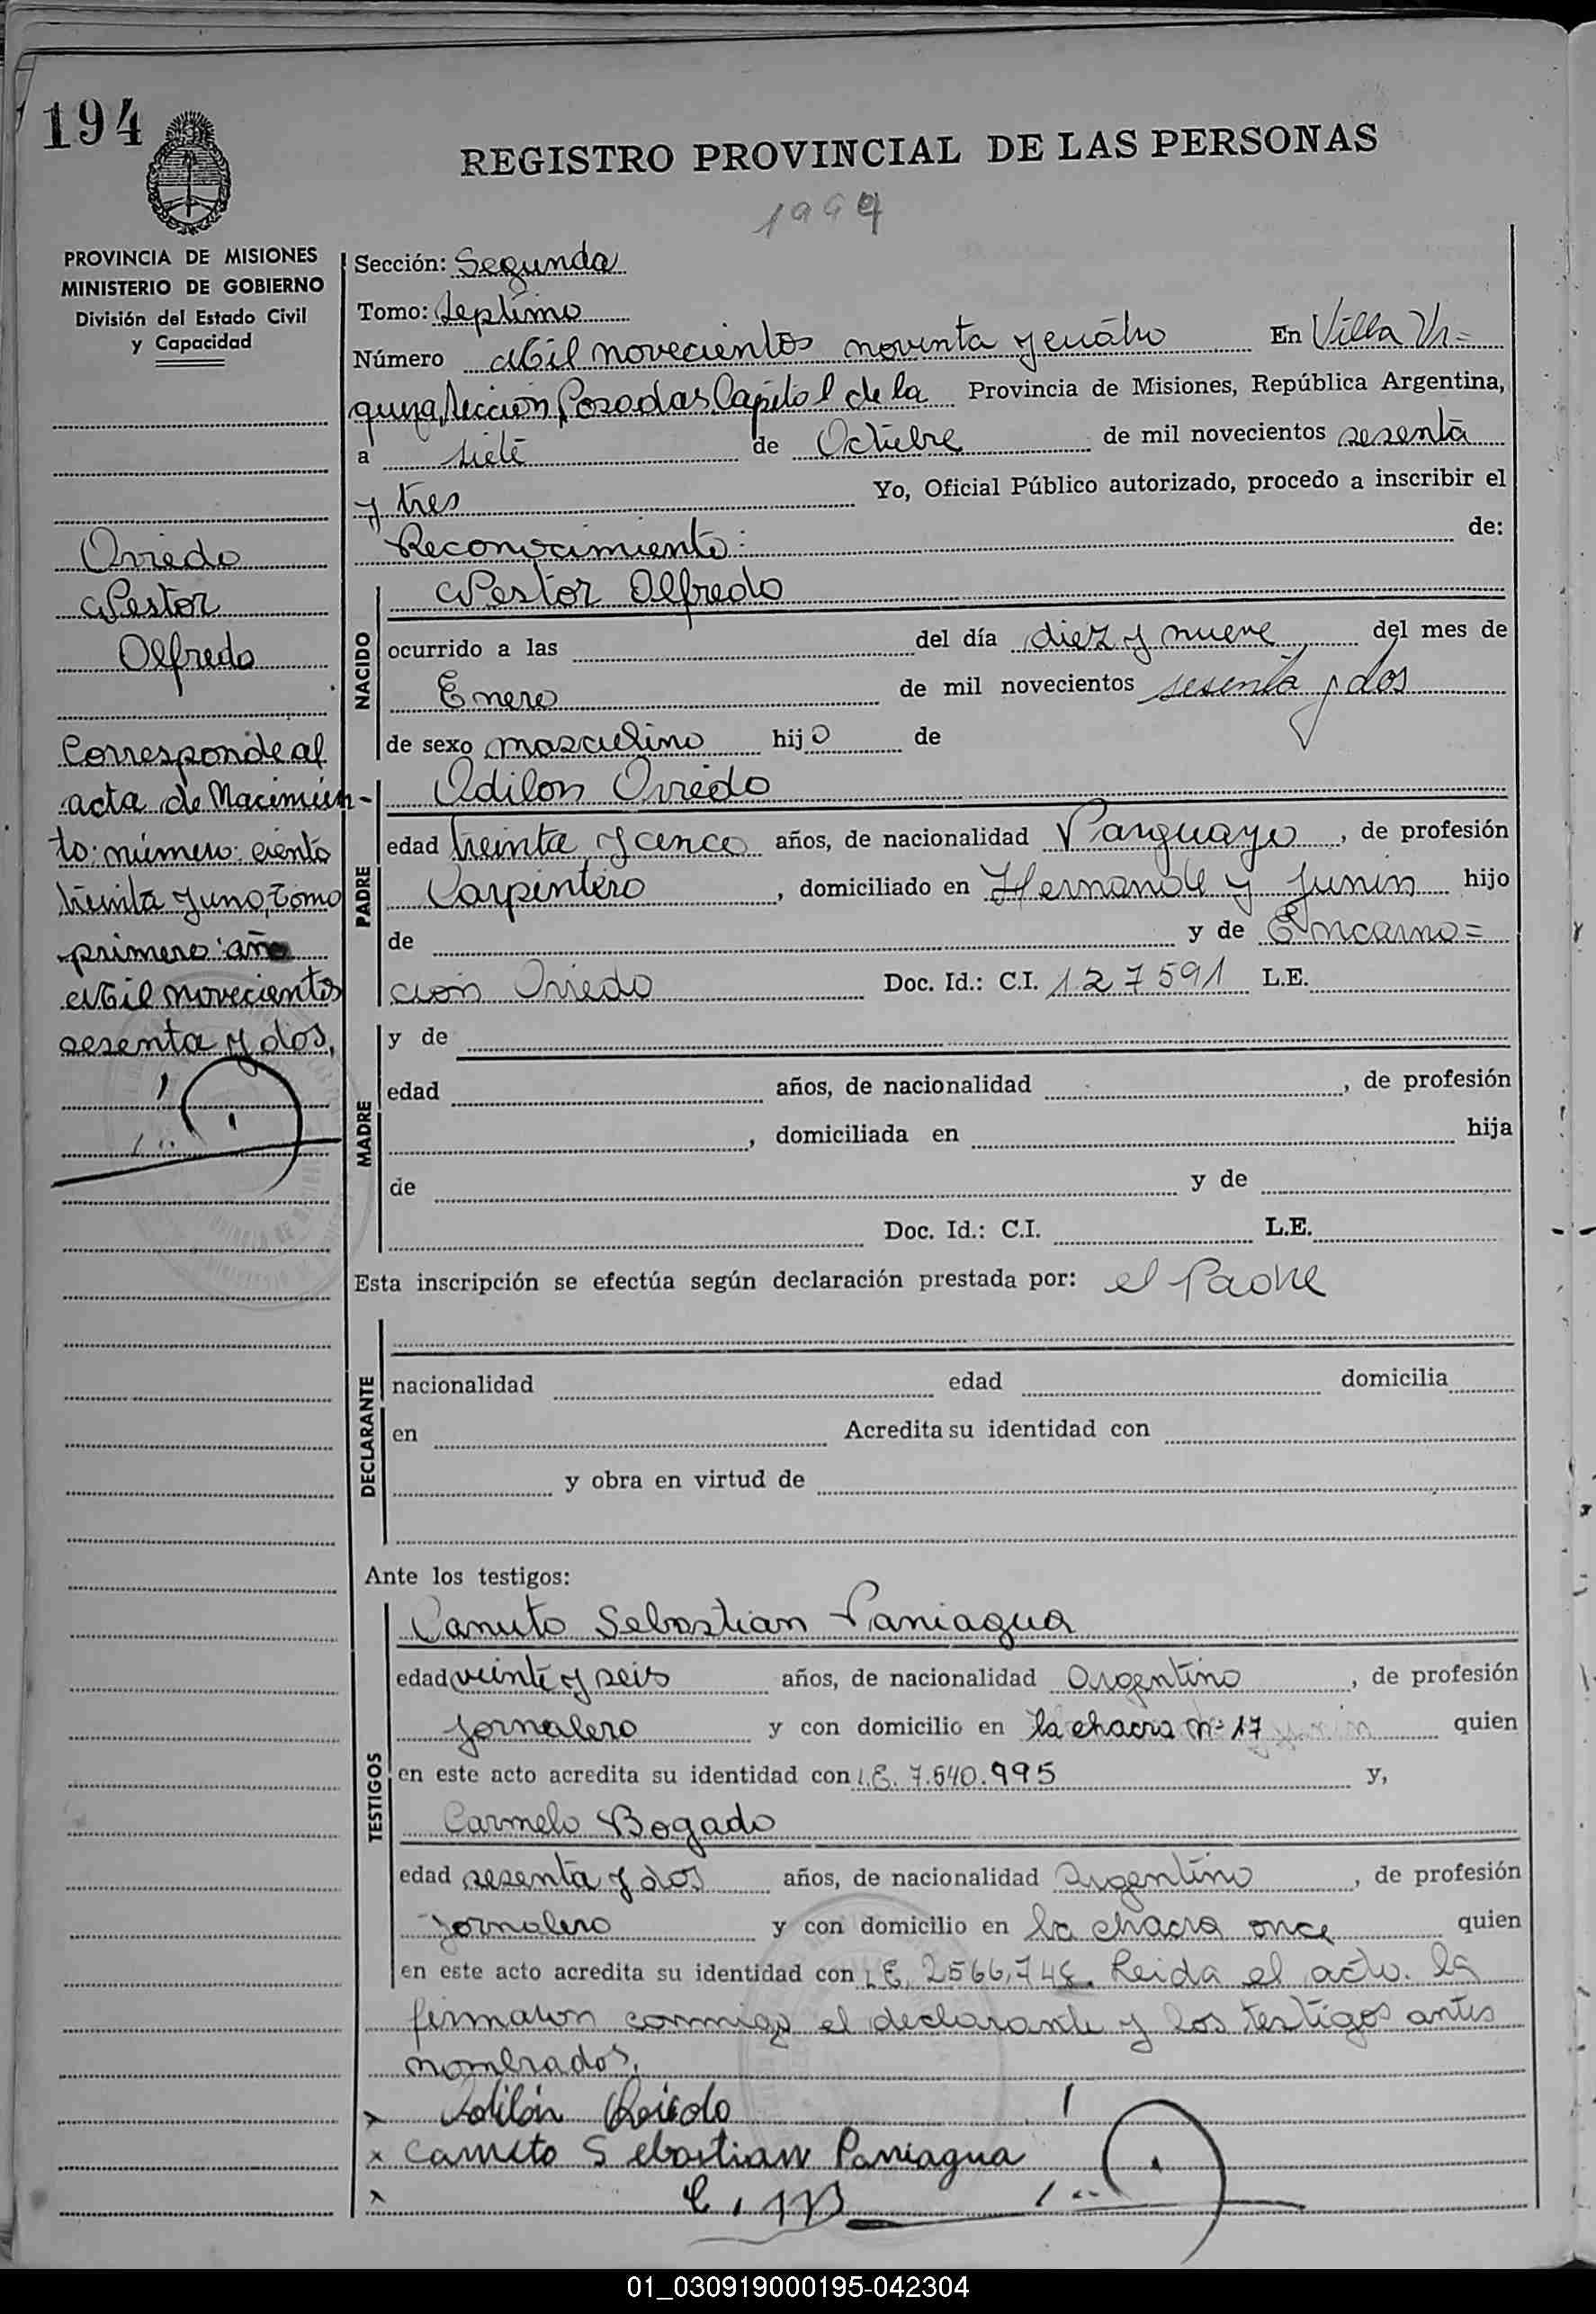 194
REGISTRO PROVINCIAL DE LAS PERSONAS
1994
PROVINCIA DE MISIONES
MINISTERIO DE GOBIERNO
División del Estado Civil
y Capacidad
Oviedo
Nestor
Alfredo
Corresponde al
acta de Nacimien-
to: número: ciento
treinta y uno, tomo
primero: año
Mil novecientos
sesenta y dos,
Sección: Segunda
Tomo: Septimo
Número Mil novecientos noventa y cuatro En Villa Ur=
quiza, Sección Posadas Capital de la Provincia de Misiones, República Argentina,
a siete de Octubre de mil novecientos sesenta
y tres Yo, Oficial Público autorizado, procedo a inscribir el
Reconocimiento: de:
NACIDO
Nestor Alfredo
ocurrido a las del día diez y nueve del mes de
Enero de mil novecientos sesenta y dos
de sexo masculino hijo de
PADRE
Odilon Oviedo
edad treinta y cinco años, de nacionalidad Parguayo, de profesión
Carpintero, domiciliado en Hernande y Junin hijo
de y de Encarna=
ción Oviedo Doc. Id.: C.I. 127591 L.E.
MADRE
y de
edad años, de nacionalidad , de profesión
, domiciliada en hija
de y de
Doc. Id.: C.I. L.E.
Esta inscripción se efectúa según declaración prestada por: el Padre
DECLARANTE
nacionalidad edad domicilia
en Acredita su identidad con
y obra en virtud de
Ante los testigos:
TESTIGOS
Canuto Sebastian Paniagua
edad veinte y seis años, de nacionalidad Argentino, de profesión
Jornalero y con domicilio en la chacra nº 17 quien
en este acto acredita su identidad con L.E. 7.540.995 y,
Carmelo Bogado
edad sesenta y dos años, de nacionalidad Argentino, de profesión
Jornalero y con domicilio en la chacra once quien
en este acto acredita su identidad con L.E. 2566,748. Leida el acta. la
firmaron conmigo el declarante y los testigos antes
nombrados.
x Odilón Oviedo
x Canuto Sebastian Paniagua
x
01_030919000195-042304